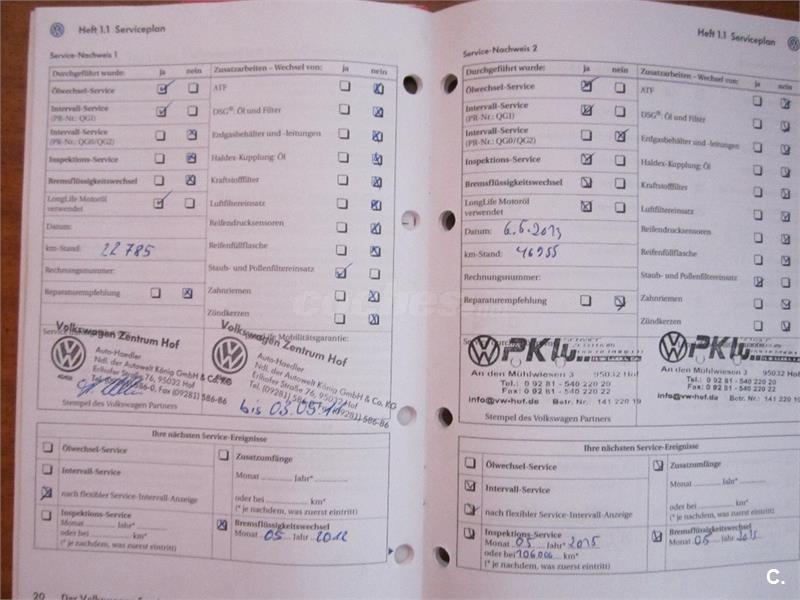 Heft 1.1 Serviceplan
Service-Nachweis 1
Durchgeführt wurde: ja nein
Ölwechsel-Service
Intervall-Service
(PR-Nr.: QG1)
Intervall-Service
(PR-Nr.: QG0/QG2)
Inspektions-Service
Bremsflüssigkeitswechsel
LongLife Motoröl
verwendet
Datum:
km-Stand: 22785
Rechnungsnummer:
Reparaturempfehlung
Zusatzarbeiten – Wechsel von: ja nein
ATF
DSG®: Öl und Filter
Erdgasbehälter und -leitungen
Haldex-Kupplung: Öl
Kraftstofffilter
Luftfiltereinsatz
Reifendrucksensoren
Reifenfüllflasche
Staub- und Pollenfiltereinsatz
Zahnriemen
Zündkerzen
Mobilitätsgarantie:
Volkswagen Zentrum Hof
Auto-Haedler
Ndl. der Autowelt König GmbH & Co. KG
Erlhofer Straße 76, 95032 Hof
Volkswagen Zentrum Hof
Auto-Haedler
Ndl. der Autowelt König GmbH & Co. KG
Erlhofer Straße 76, 95032 Hof
Tel. (09281) 586-86
bis 03.05
Stempel des Volkswagen Partners
Ihre nächsten Service-Ereignisse
Ölwechsel-Service
Intervall-Service
nach flexibler Service-Intervall-Anzeige
Inspektions-Service
Monat Jahr*
oder bei km*
(* je nachdem, was zuerst eintritt)
Zusatzumfänge
Monat Jahr*
oder bei km*
(* je nachdem, was zuerst eintritt)
Bremsflüssigkeitswechsel
Monat 05 Jahr 2012
20
Heft 1.1 Serviceplan
Service-Nachweis 2
Durchgeführt wurde: ja nein
Ölwechsel-Service
Intervall-Service
(PR-Nr.: QG1)
Intervall-Service
(PR-Nr.: QG0/QG2)
Inspektions-Service
Bremsflüssigkeitswechsel
LongLife Motoröl
verwendet
Datum: 6.5.2013
km-Stand: 46955
Rechnungsnummer:
Reparaturempfehlung
Zusatzarbeiten – Wechsel von: ja nein
ATF
DSG®: Öl und Filter
Erdgasbehälter und -leitungen
Haldex-Kupplung: Öl
Kraftstofffilter
Luftfiltereinsatz
Reifendrucksensoren
Reifenfüllflasche
Staub- und Pollenfiltereinsatz
Zahnriemen
Zündkerzen
An den Mühlwiesen 3
Tel.: 0 92 81 - 540 220 20
Fax: 0 92 81 - 540 220 22
info@vw-hof.de Betr. Nr.: 141 220 19
An den Mühlwiesen 3 95032 Hof
Tel.: 0 92 81 - 540 220 20
info@vw-hof.de Betr. Nr.: 141 220
Stempel des Volkswagen Partners
Ihre nächsten Service-Ereignisse
Ölwechsel-Service
Intervall-Service
nach flexibler Service-Intervall-Anzeige
Inspektions-Service
Monat 05 Jahr* 2015
oder bei 106000 km*
(* je nachdem, was zuerst eintritt)
Zusatzumfänge
Monat Jahr*
oder bei km*
(* je nachdem, was zuerst eintritt)
Bremsflüssigkeitswechsel
Monat 05 Jahr 2015
C.